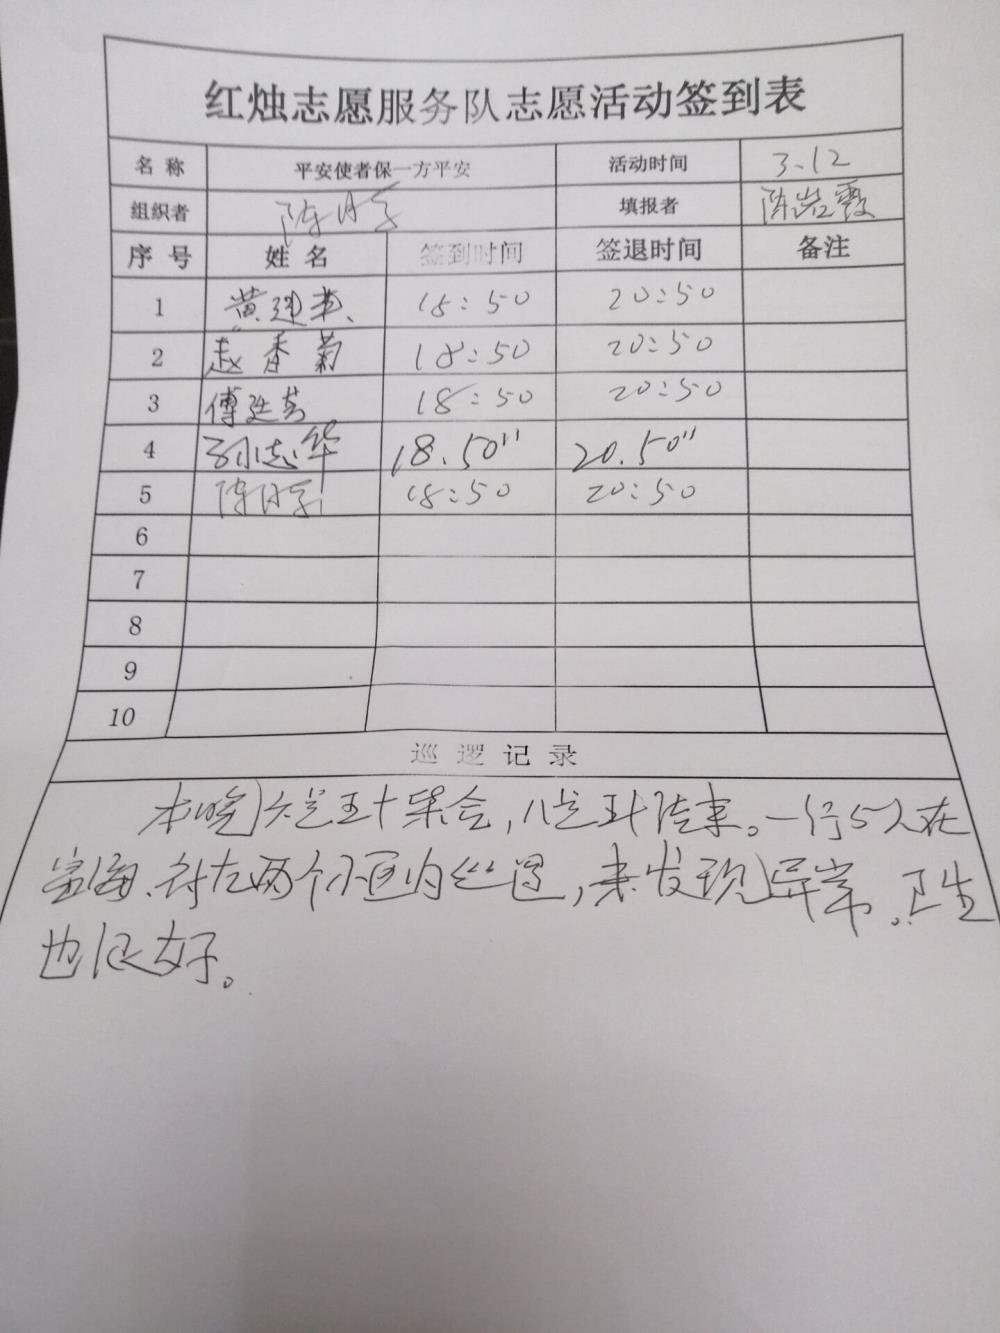 红烛志愿服务队志愿活动签到表
名 称 平安使者保一方平安 活动时间 3.12
组织者 陈月 填报者 陈岩霞
序 号 姓 名 签到时间 签退时间 备注
1 黄建 18:50 20:50
2 赵香菊 18:50 20:50
3 傅廷芳 18:50 20:50
4 孙志华 18.50" 20.50"
5 陈月 18:50 20:50
6
7
8
9
10
巡 逻 记 录
本晚六点五十集会,八点五十结束。一行5人在
两个小区内巡逻,未发现异常。卫生
也很好。